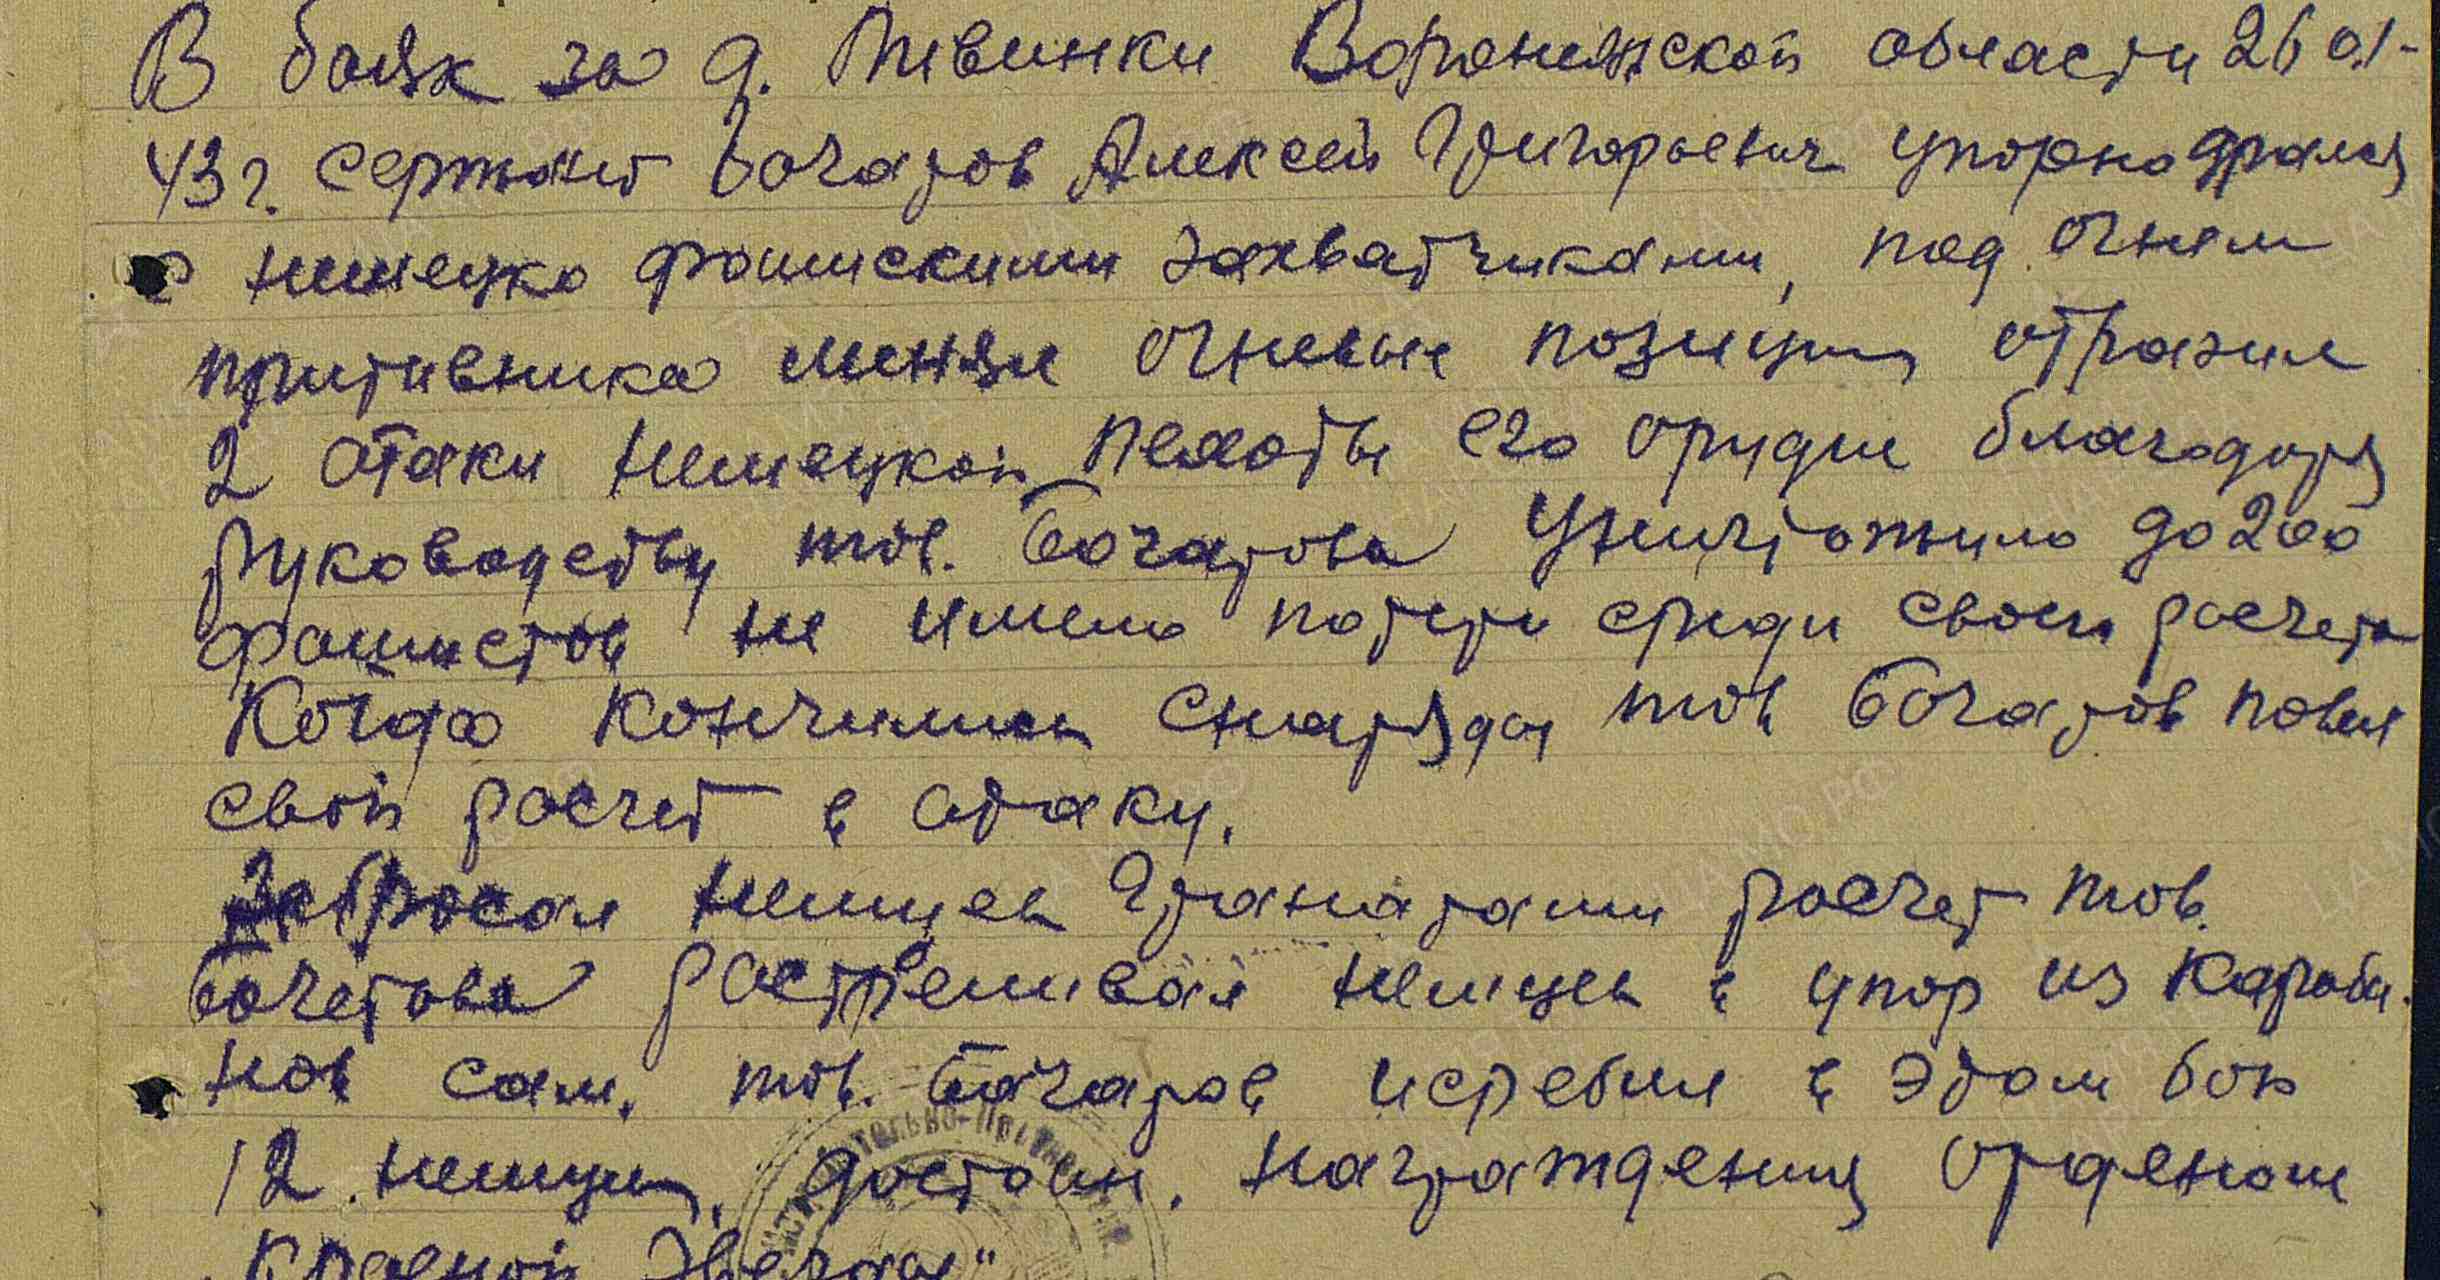 В боях за д. Пивинки Воронежской области 26 01-
43 г. сержант Бочаров Алексей Григорьевич упорно дрался
с немецко фашискими захватчиками, под огнем
притивника меняя огневые позиции отразил
2 атаки немецкой пехоты его орудие благодоря
руководству тов. Бочарова уничтожило до 200
фашистов не имело потерь среди своего расчета
Когда кончились снаряды тов Бочаров повел
свой расчет в атаку.
Забросал немцев гранатами расчет тов.
Бочарова растреливал немцев в упор из караби-
нов сам. тов. Бочаров исребил в этом бою
12 немцев, достоин. награждения орденом
"Красной Звезды"